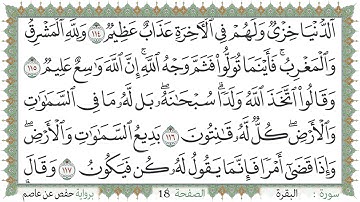 ٱلدُّنۡيَا خِزۡيٞ وَلَهُمۡ فِي ٱلۡأٓخِرَةِ عَذَابٌ عَظِيمٞ ١١٤ وَلِلَّهِ ٱلۡمَشۡرِقُ
وَٱلۡمَغۡرِبُۚ فَأَيۡنَمَا تُوَلُّواْ فَثَمَّ وَجۡهُ ٱللَّهِۚ إِنَّ ٱللَّهَ وَٰسِعٌ عَلِيمٞ ١١٥
وَقَالُواْ ٱتَّخَذَ ٱللَّهُ وَلَدٗاۗ سُبۡحَٰنَهُۥۖ بَل لَّهُۥ مَا فِي ٱلسَّمَٰوَٰتِ
وَٱلۡأَرۡضِۖ كُلّٞ لَّهُۥ قَٰنِتُونَ ١١٦ بَدِيعُ ٱلسَّمَٰوَٰتِ وَٱلۡأَرۡضِۖ
وَإِذَا قَضَىٰٓ أَمۡرٗا فَإِنَّمَا يَقُولُ لَهُۥ كُن فَيَكُونُ ١١٧ وَقَالَ
سورة : البقرة الصفحة 18 برواية حفص عن عاصم